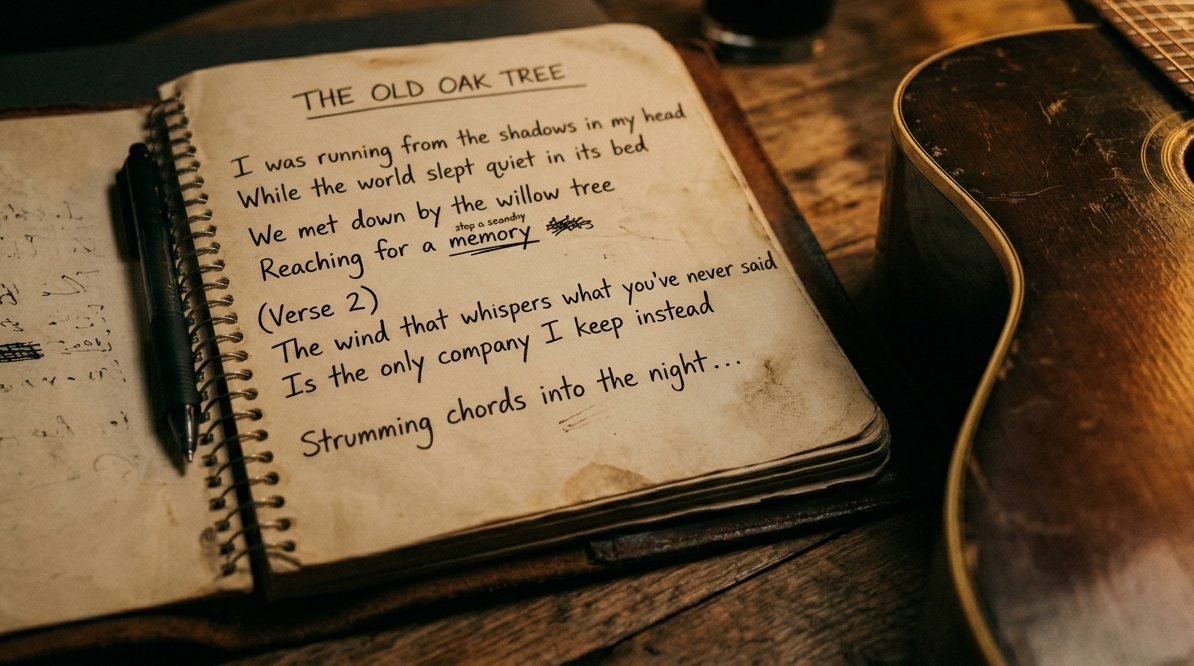 THE OLD OAK TREE
I was running from the shadows in my head
While the world slept quiet in its bed
We met down by the willow tree
stop a
Reaching for a memory
(Verse 2)
The wind that whispers what you've never said
Is the only company I keep instead
Strumming chords into the night...